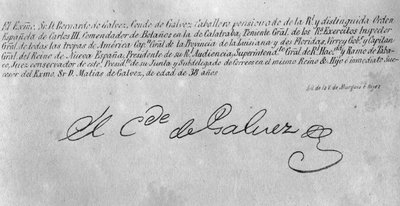 El Exmo. Sr. D. Bernardo de Galvez, Conde de Galvez, Caballero pensionado de la Rl. y distinguida Orden
Española de Carlos III. Comendador de Bolaños en la de Calatrava, Teniente Gral. de los Rs. Exercitos Inspector
Gral. de todas las tropas de América Capn. Gral. de la Provincia de la Luisiana y dos Floridas, Virrey Gobr. y Capitan
Gral. del Reino de Nueva España, Presidente de su Rl. Audiencia, Superintendte. Gral. de Rl. Hacda. y Ramo de Taba-
co, Juez conservador de este, Presidte. de su Junta y Subdelegado de Correos en el mismo Reino &. Hijo é inmediato Suc-
cesor del Exmo. Sr. D. Matias de Galvez, de edad de 38 años
Lit. de la V. de Murguia é hijos
El Cde. de Galvez